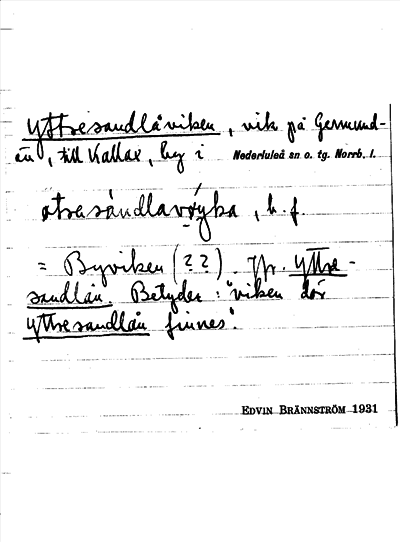 Yttresandlåviken, vik på Germund-
ön, till Kallax, by i Nederluleå sn o. tg. Norrb. l.
b. f.
= Byviken (??). Jfr. Yttre-
sandlån. Betyder: "viken där
yttresandlån finnes".
EDVIN BRÄNNSTRÖM 1931